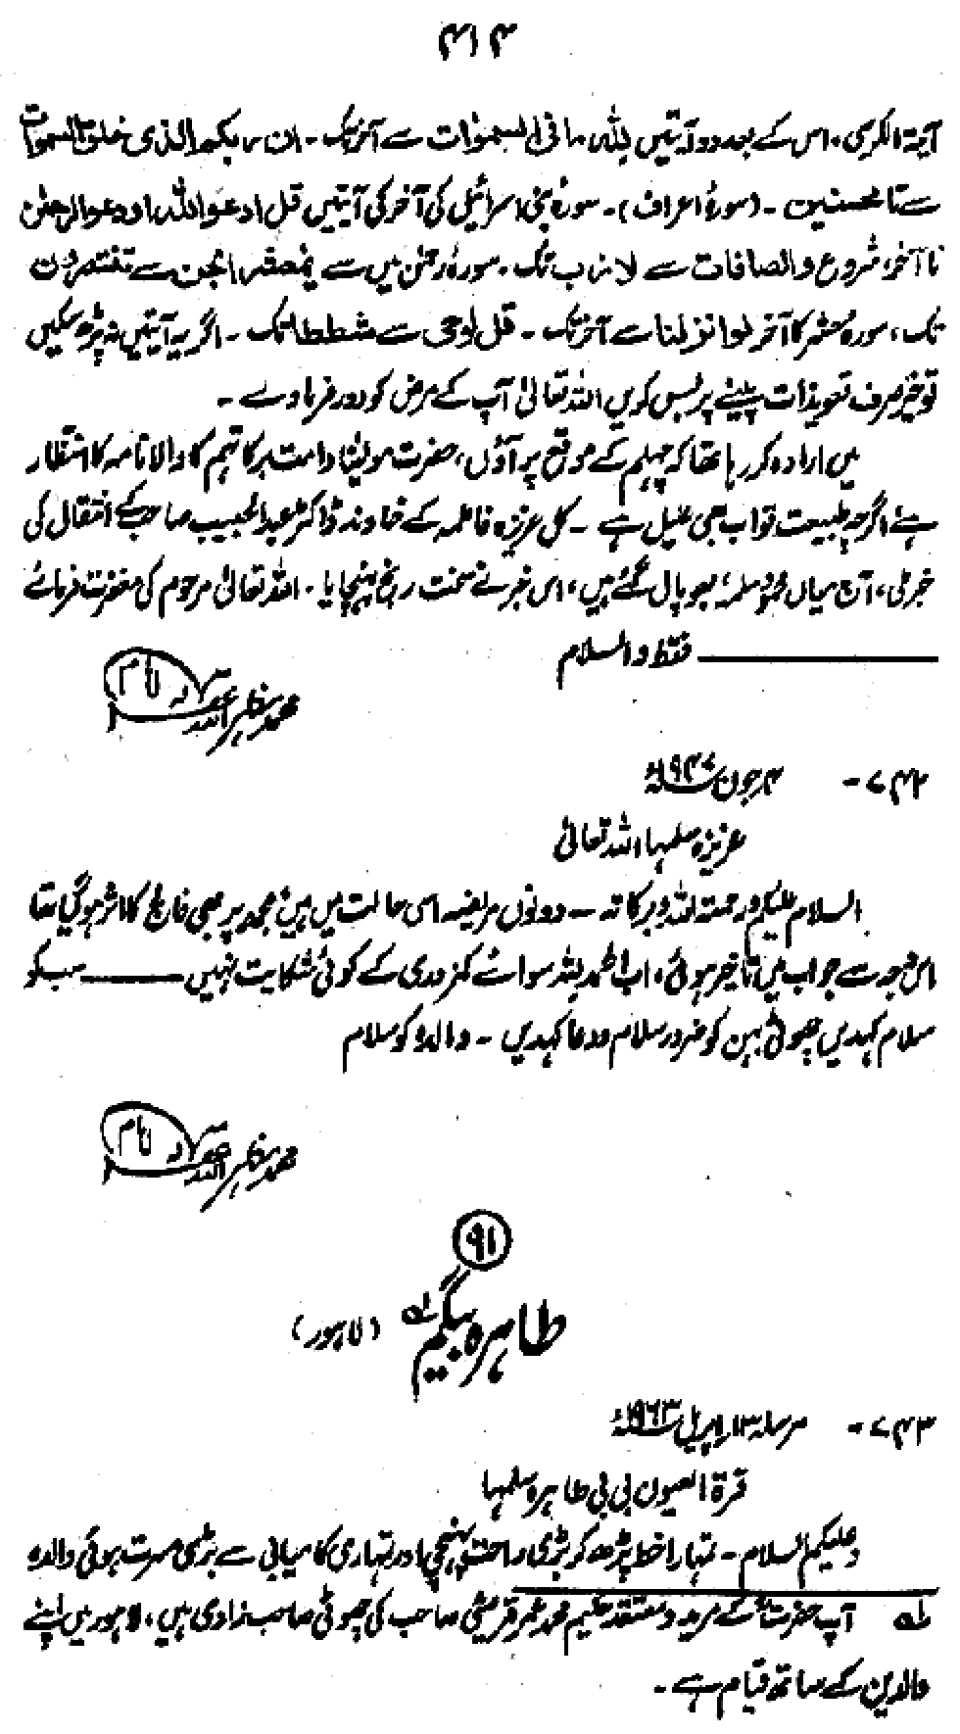 ۴۱۴
آیۃ الکرسی، اس کے بعد دو آیتیں للہ ما فی السموات سے آخر تک ۔ ان ربکم الذی خلق السموات
سے تا محسنین ۔ (سورۂ اعراف) ۔ سورہ بنی اسرائیل کی آخر کی آیتیں قل ادعوا اللہ اودعوا الرحمٰن
تا آخر، شروع والصافات سے لازب تک ۔ سورہ رحمٰن میں سے یمعشر الجن سے تنتصران
تک، سورہ حشر کا آخر لو انزلنا سے آخر تک ۔ قل اوحی سے شططا تک ۔ اگر یہ آیتیں نہ پڑھ سکیں
تو خیر صرف تعویذات پینے پر بس کریں اللہ تعالیٰ آپ کے مرض کو دور فرمادے ۔
میں ارادہ کر رہا تھا کہ چہلم کے موقع پر آؤں، حضرت مولیٰنا دامت برکاتہم کا والا نامہ کا انتظار
ہے، اگرچہ طبیعت تو اب بھی علیل ہے ۔ کل عزیزہ فاطمہ کے خاوند ڈاکٹر عبدالحبیب صاحب کے انتقال کی
خبر ملی، آج میاں سلمہٗ بھوپال گئے ہیں، اس خبر نے سخت رنج پہنچایا ۔ اللہ تعالیٰ مرحوم کی مغفرت فرمائے
فقط والسلام
محمد مظہر اللہ
۷۴۲ - ۴ رجون ۱۹۴۷ء
عزیزہ سلمہا اللہ تعالیٰ
السلام علیکم ورحمۃ اللہ وبرکاتہ ــ دونوں مریضہ اسی حالت میں ہیں، مجھ پر بھی فالج کا اثر ہو گیا تھا
اس وجہ سے جواب میں تاخیر ہوئی، اب الحمد للہ سوائے کمزوری کے کوئی شکایت نہیں ــــ سب کو
سلام کہدیں چھوٹی بہن کو ضرور سلام و دعا کہدیں ۔ والدہ کو سلام
محمد مظہر اللہ
۹۱
طاہرہ بیگم لہ (لاہور)
۷۴۳ - مرسلہ ۱۳ اپریل ۱۹۶۳ء
قرۃ العیون بی بی طاہرہ سلمہا
وعلیکم السلام ۔ تمہارا خط پڑھ کر بڑی راحت پہنچی اور تمہاری کامیابی سے بڑی مسرت ہوئی والدہ
لہ آپ حضرت کے مرید و معتقد حکیم محمد عمر قریشی صاحب کی چھوٹی صاحبزادی ہیں، لاہور میں اپنے
والدین کے ساتھ قیام ہے ۔